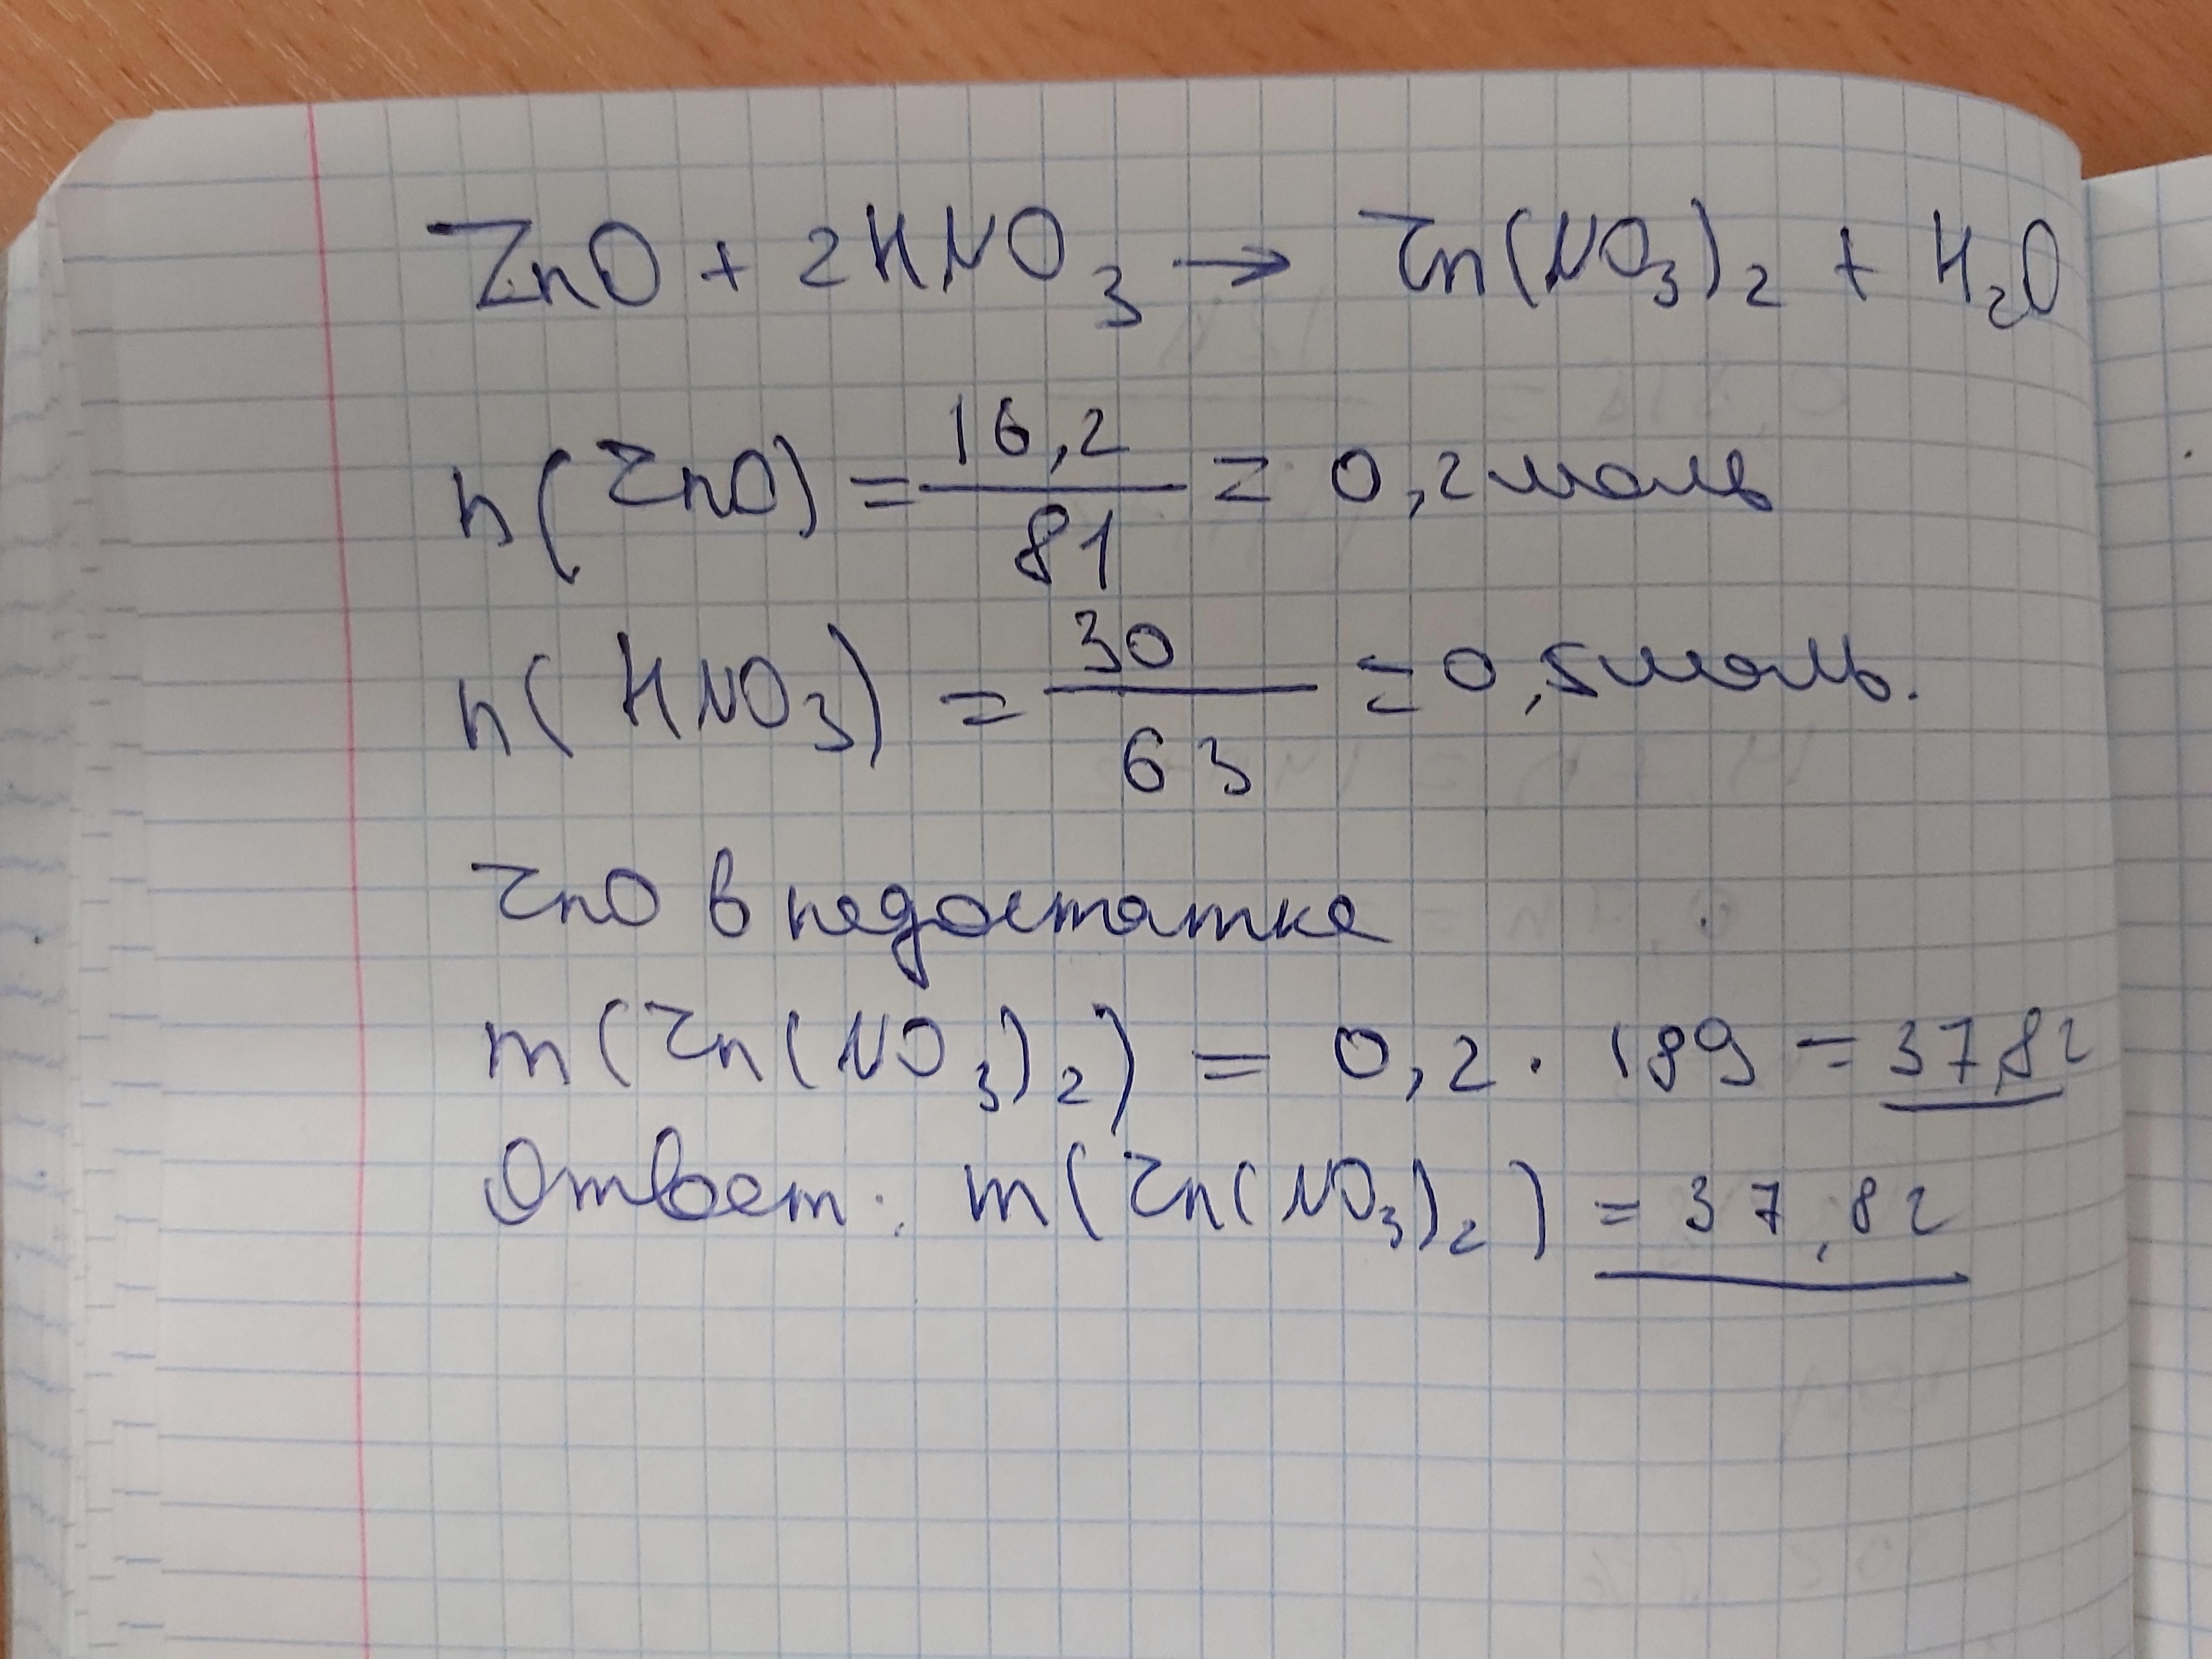 ZnO + 2HNO₃ → Zn(NO₃)₂ + H₂O
n(ZnO) = 16,2/81 = 0,2 моль
n(HNO₃) = 30/63 = 0,5 моль.
ZnO в недостатке
m(Zn(NO₃)₂) = 0,2 · 189 = 37,8г
Ответ: m(Zn(NO₃)₂) = 37,8г